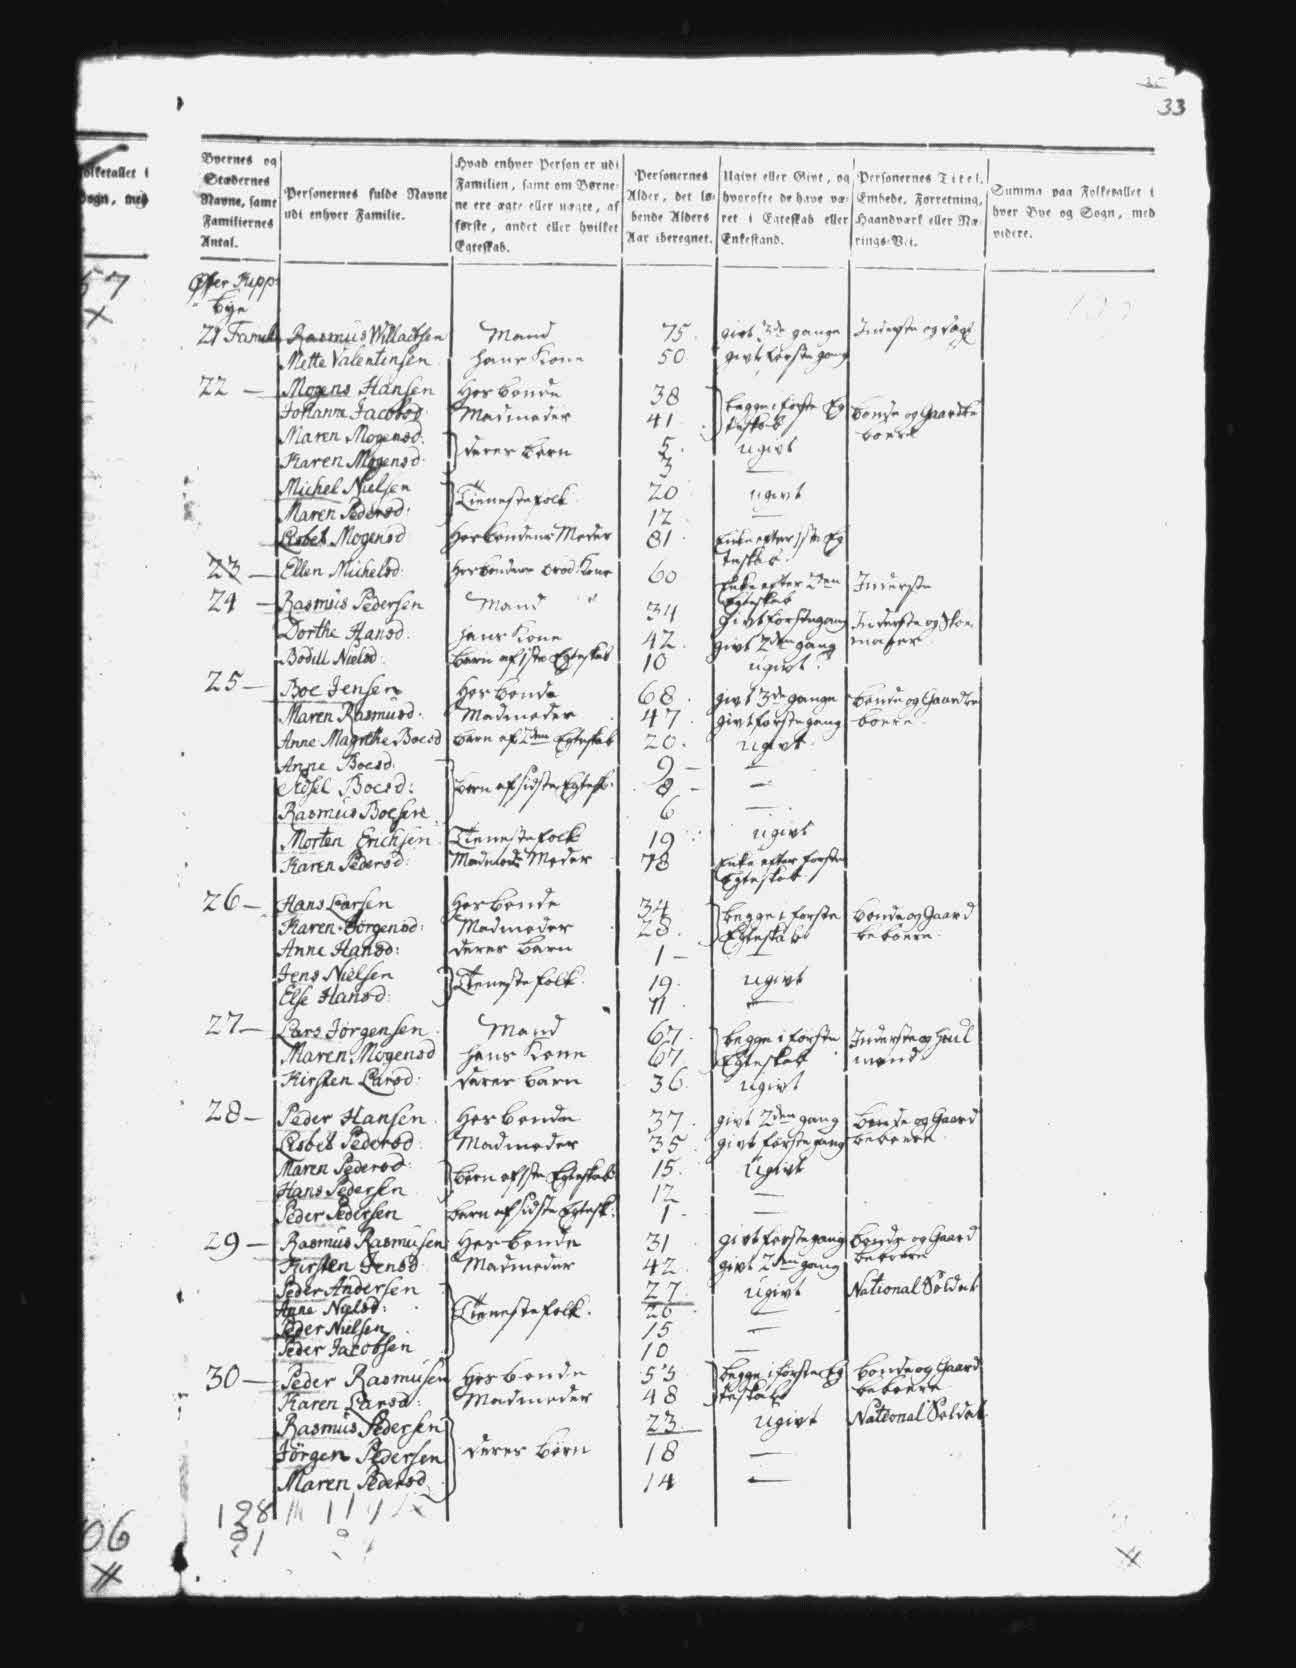 33
Byernes og Stædernes Navne, samt Familiernes Antal.
Personernes fulde Navne udi enhver Familie.
Hvad enhver Person er udi Familien, samt om Børnene ere ægte eller uægte, af første, andet eller hvilket Egteskab.
Personernes Alder, det løbende Alders Aar iberegnet.
Ugivt eller Givt, og hvorofte de have været i Egteskab eller Enkestand.
Personernes Titel, Embede, Forretning, Haandværk eller Nærings-Vei.
Summa paa Folketallet i hver Bye og Sogn, med videre.
Øster Kipp
bye
21 Famil Rasmus Willadsen Mand 75 givt 3de gange Inderste og
Mette Valentinsen hans Kone 50 givt første gang
22 — Mogens Hansen Hosbonde 38 begge i første Eg
Johanna Jacobsd Madmoder 41 teskab bonde og Gaardbe
Maren Mogensd: deres børn 5 ugivt boere
Karen Mogensd: 3 —
Michel Nielsen Tienestefolk 20 ugivt
Maren Pedersd: 12 —
Lisbet Mogensd Hosbondens Moder 81 Enke efter 1ste Eg
teskab
23 — Ellen Michelsd: Hosbondens brod. Kone 60 Enke efter 2den Inderste
Egteskab
24 — Rasmus Pedersen Mand 34 givt første gang Inderste og Skoe
Dorthe Hansd. hans Kone 42 givt 2den gang mager
Bodill Nielsd: barn af 1ste Egteskab 10 ugivt
25 — Boe Jensen Hosbonde 68 givt 3de gange bonde og Gaardbe
Maren Rasmusd: Madmoder 47 givt første gang boere
Anne Magrethe Boesd barn af 2den Egteskab 20 ugivt
Anne Boesd: 9 —
Boesd: børn af sidste Egtesk: 8 —
Rasmus Boesen 6 —
Morten Erichsen Tienestefolk 19 ugivt
Karen Pedersd: Madmoders Moder 78 Enke efter første
Egteskab
26 — Hans Larsen Hosbonde 34 begge i første bonde og Gaard
Karen Jörgensd: Madmoder 28 Egteskab beboere
Anne Hansd: deres barn 1 —
Jens Nielsen Tienestefolk 19 ugivt
Else Hansd: 11 —
27 — Lars Jörgensen Mand 67 begge i første Inderste og Hiul
Maren Mogensd hans Kone 67 Egteskab mand
Kirsten Larsd: deres barn 36 ugivt
28 — Peder Hansen Hosbonde 37 givt 2den gang bonde og Gaard
Lisbet Pedersd Madmoder 35 givt første gang beboere
Maren Pedersd: børn af 1ste Egteskab 15 Ugivt
Hans Pedersen 12 —
Peder Pedersen barn af sidste Egtesk: 1 —
29 — Rasmus Rasmusen Hosbonde 31 givt første gang bonde og Gaard
Kirsten Jensd Madmoder 42 givt 2den gang beboere
Peder Andersen 27 Ugivt National Soldat
Anne Nielsd: Tienestefolk. 26 —
Peder Nielsen 15 —
Peder Jacobsen 10 —
30 — Peder Rasmusen Hosbonde 53 begge i første Eg bonde og Gaard
Karen Larsd: Madmoder 48 teskab beboere
Rasmus Pedersen 23 Ugivt National Soldat
Jörgen Pedersen deres børn 18 —
Maren Pedersd 14 —